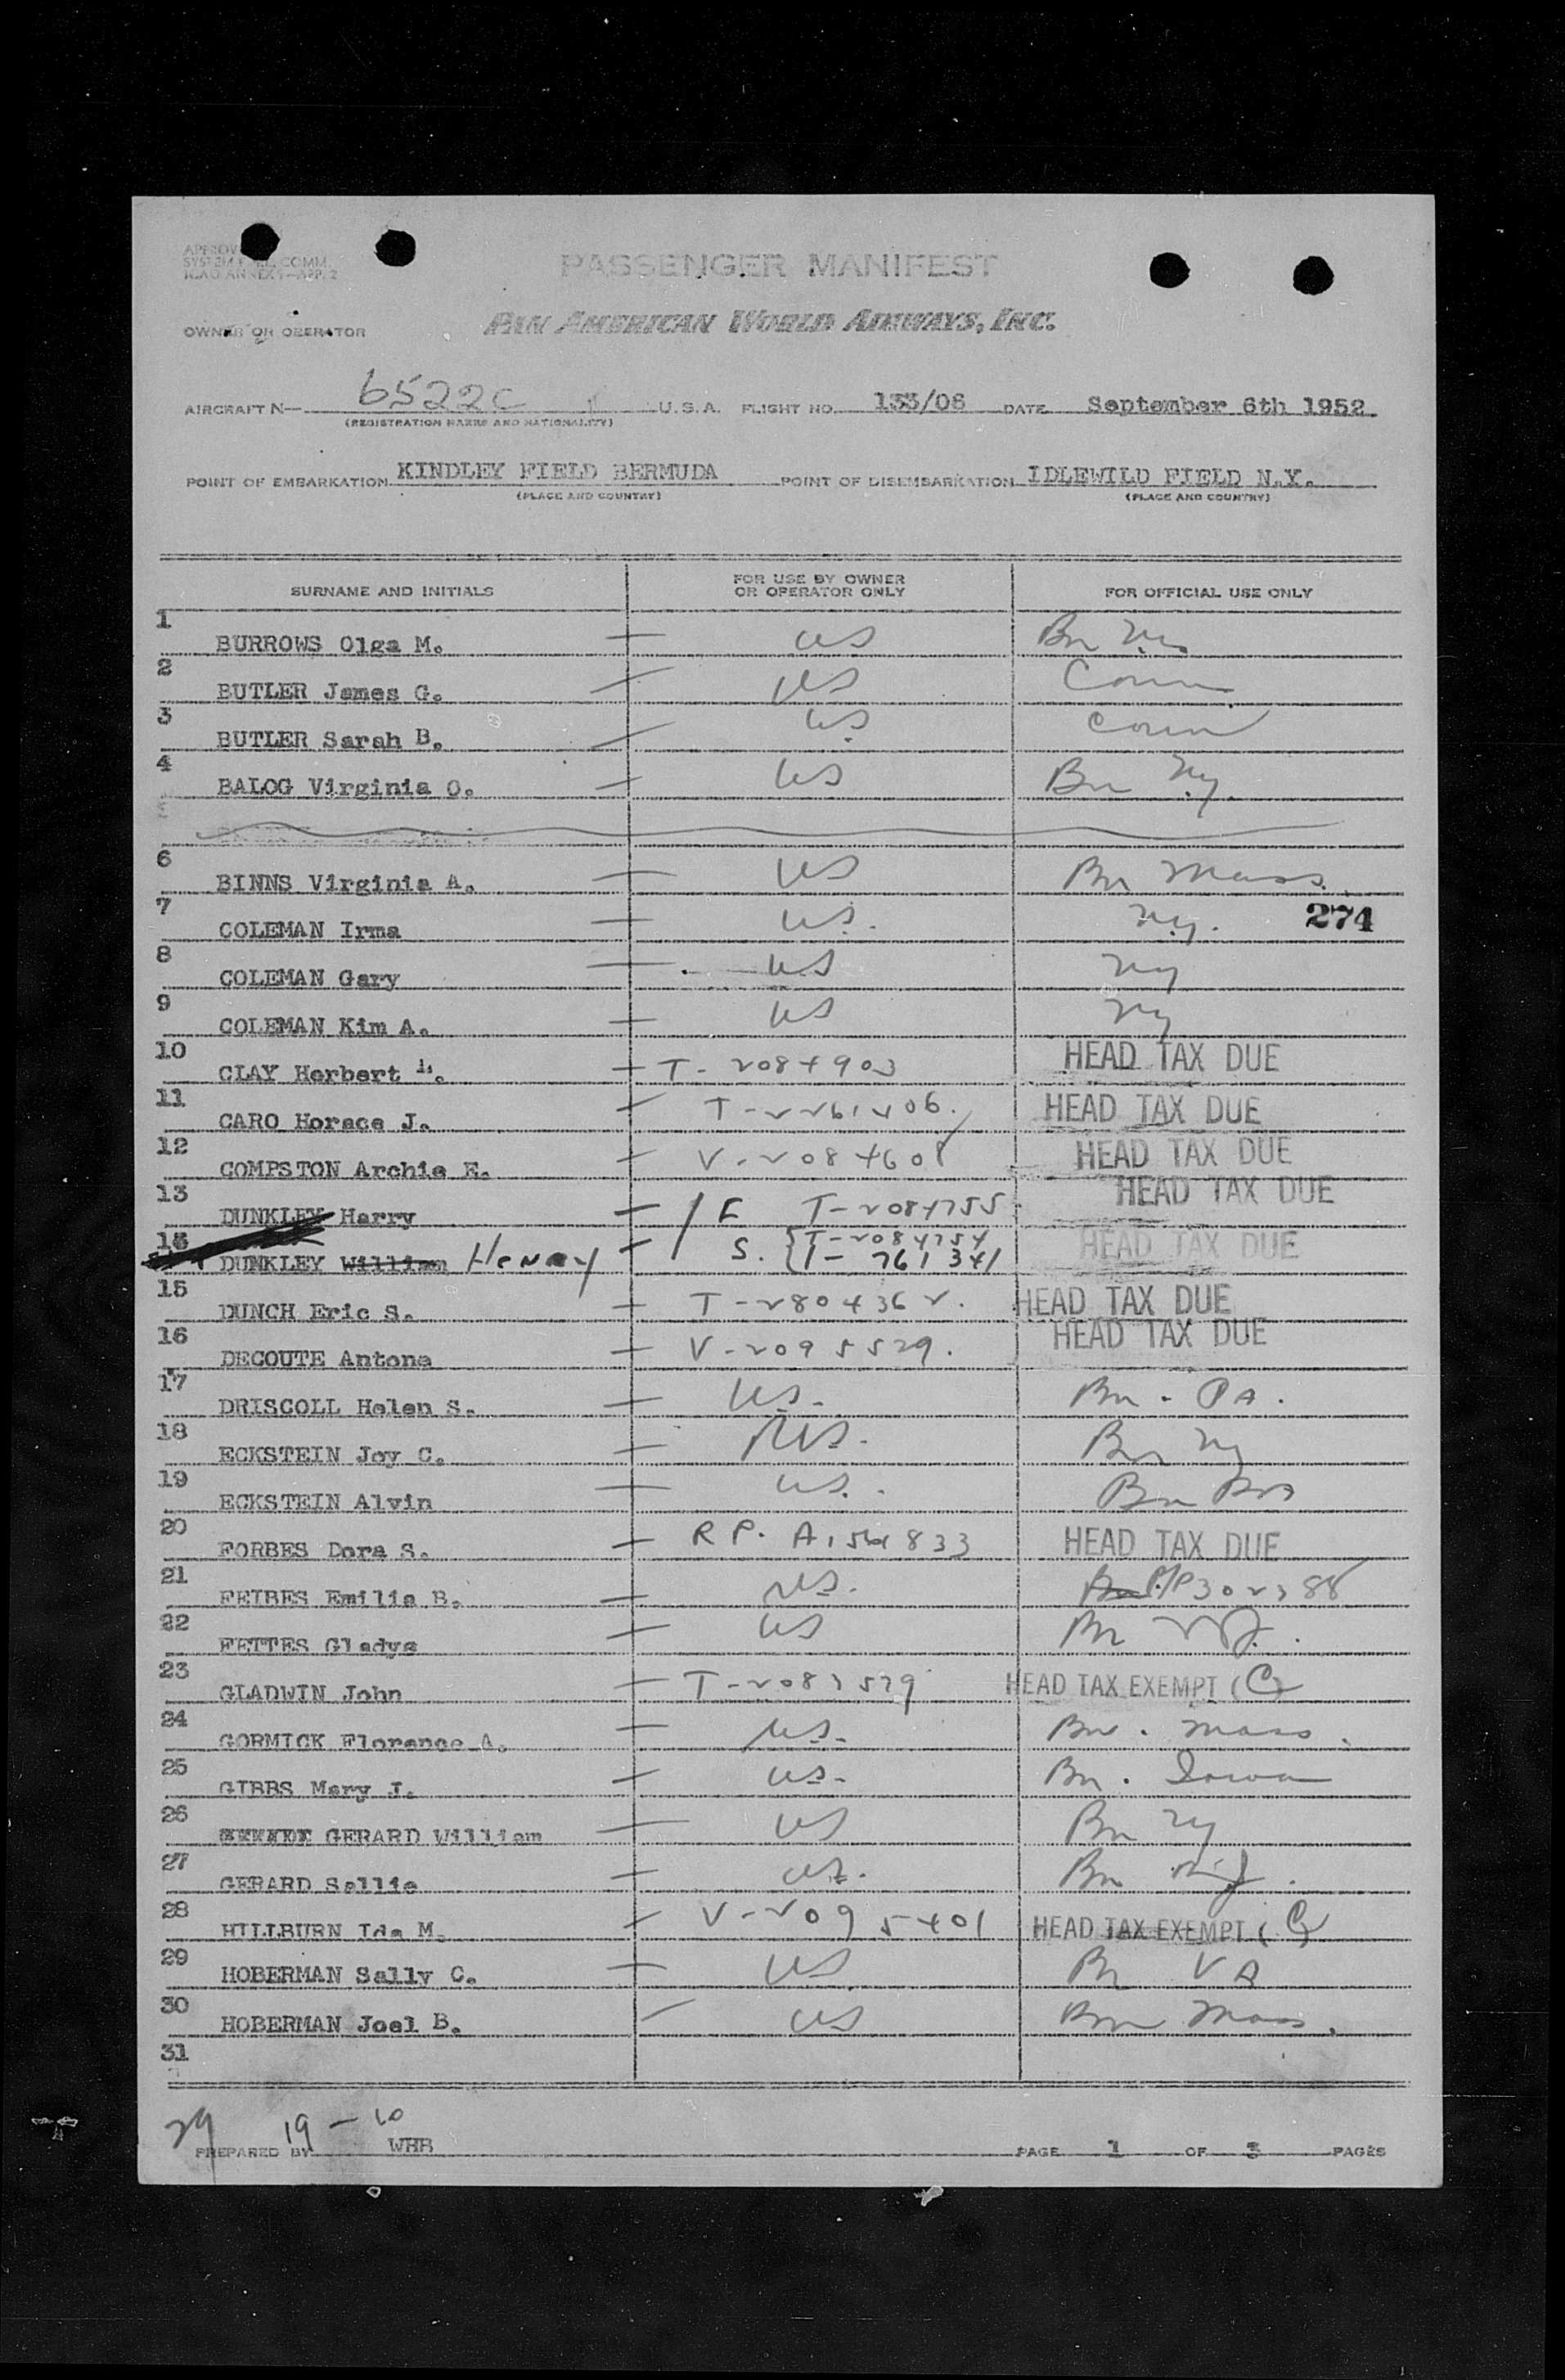 PASSENGER MANIFEST
OWNER OR OPERATOR PAN AMERICAN WORLD AIRWAYS, INC.
AIRCRAFT N— 6522C U.S.A. FLIGHT NO. 133/06 DATE September 6th 1952
(REGISTRATION MARKS AND NATIONALITY)
POINT OF EMBARKATION KINDLEY FIELD BERMUDA POINT OF DISEMBARKATION IDLEWILD FIELD N.Y.
(PLACE AND COUNTRY) (PLACE AND COUNTRY)
SURNAME AND INITIALS FOR USE BY OWNER OR OPERATOR ONLY FOR OFFICIAL USE ONLY
1 BURROWS Olga M. — US Bn
2 BUTLER James G. — US Conn
3 BUTLER Sarah B. — US Conn
4 BALOG Virginia O. — US Bn Ny.
6 BINNS Virginia A. — US Bn Mass.
7 COLEMAN Irma — US. Ny. 274
8 COLEMAN Gary — US Ny
9 COLEMAN Kim A. — US Ny
10 CLAY Herbert — T-2084903 HEAD TAX DUE
11 CARO Horace J. — T-2261406. HEAD TAX DUE
12 COMPSTON Archie E. — V-2084608 HEAD TAX DUE
13 DUNKLEY Harry — / E T-2084755 HEAD TAX DUE
14 DUNKLEY William Henry — S. { T-2084754 T-761341 HEAD TAX DUE
15 DUNCH Eric S. — T-2804362. HEAD TAX DUE
16 DECOUTE Antone — V-2095529. HEAD TAX DUE
17 DRISCOLL Helen S. — US. Bn - PA.
18 ECKSTEIN Joy C. — US. Bn Ny
19 ECKSTEIN Alvin — US. Bn
20 FORBES Dora S. — R P. A154833 HEAD TAX DUE
21 FEIBES Emilie B. — US. P/P 302388
22 FETTES Gladys — US Bn NJ.
23 GLADWIN John — T-2083579 HEAD TAX EXEMPT (C)
24 GORMICK Florence A. — US. Bn. Mass.
25 GIBBS Mary J. — US. Bn. Iowa
26 GERARD William — US Bn Ny
27 GERARD Sallie — US. Bn NJ.
28 HILLBURN Ida M. — V-2095401 HEAD TAX EXEMPT (C)
29 HOBERMAN Sally C. — US Bn VA
30 HOBERMAN Joel B. — US Bn Mass.
31
29 19 - 10
PREPARED BY WHB PAGE 1 OF 3 PAGES